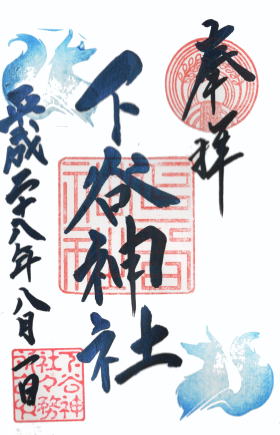 奉拝
下谷神社
平成二十八年八月一日
下谷神
社々務
所之印